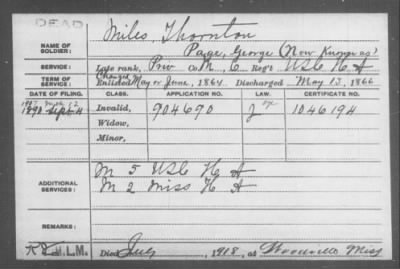 DEAD
Miles, Thornton
NAME OF SOLDIER:
Page, George (Now Known as)
SERVICE: Late rank, Priv Co. M, 6 Reg't USC H A
TERM OF SERVICE: Enlisted May or June, 1864 Discharged May 13, 1866
DATE OF FILING. CLASS. APPLICATION NO. LAW. CERTIFICATE NO.
1890 Sept 4 Invalid, 904690 1046194
Widow,
Minor,
ADDITIONAL SERVICES:
M 5 USC H A
M 2 Miss H A
REMARKS:
Died July 1918, at Miss